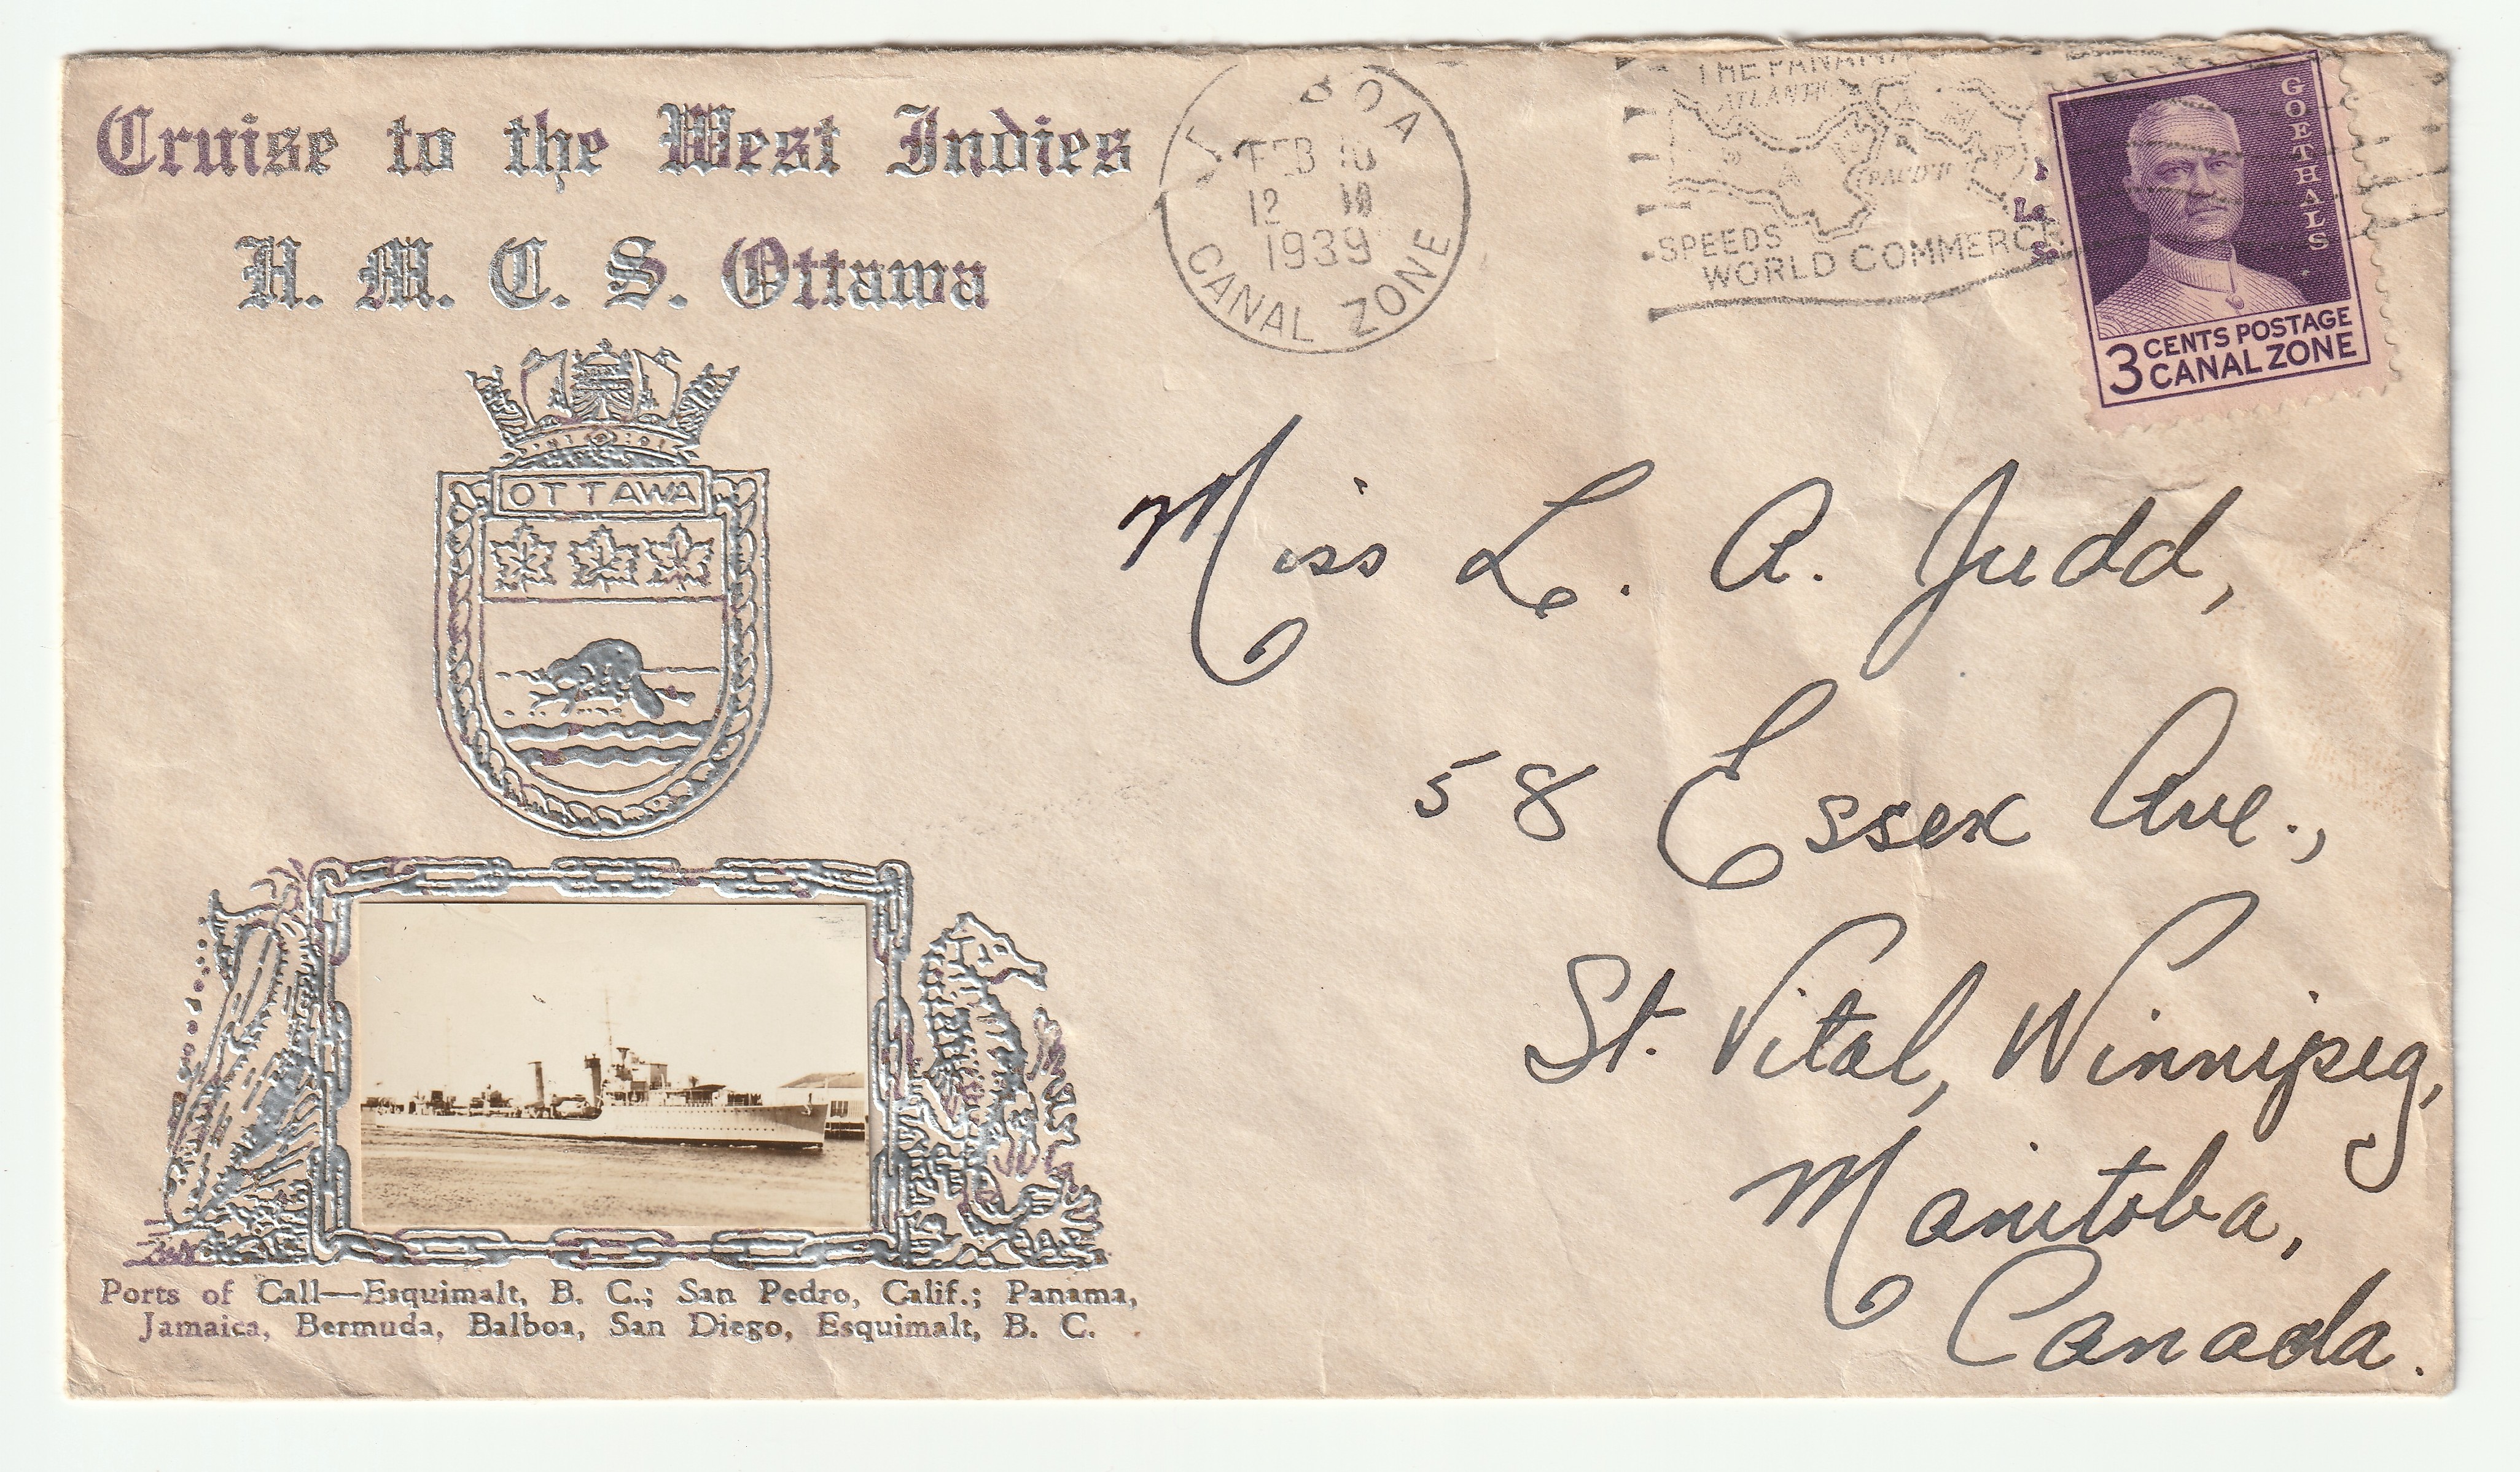 Cruise to the West Indies
H. M. C. S. Ottawa
OTTAWA
Ports of Call—Esquimalt, B. C.; San Pedro, Calif.; Panama,
Jamaica, Bermuda, Balboa, San Diego, Esquimalt, B. C.
BOA
FEB
12
1939
CANAL ZONE
THE PANAMA
ATLANTIC
PACIFIC
SPEEDS
WORLD COMMERCE
GOETHALS
3 CENTS POSTAGE
CANAL ZONE
Miss L. A. Judd,
58 Essex Ave.,
St. Vital, Winnipeg,
Manitoba,
Canada.